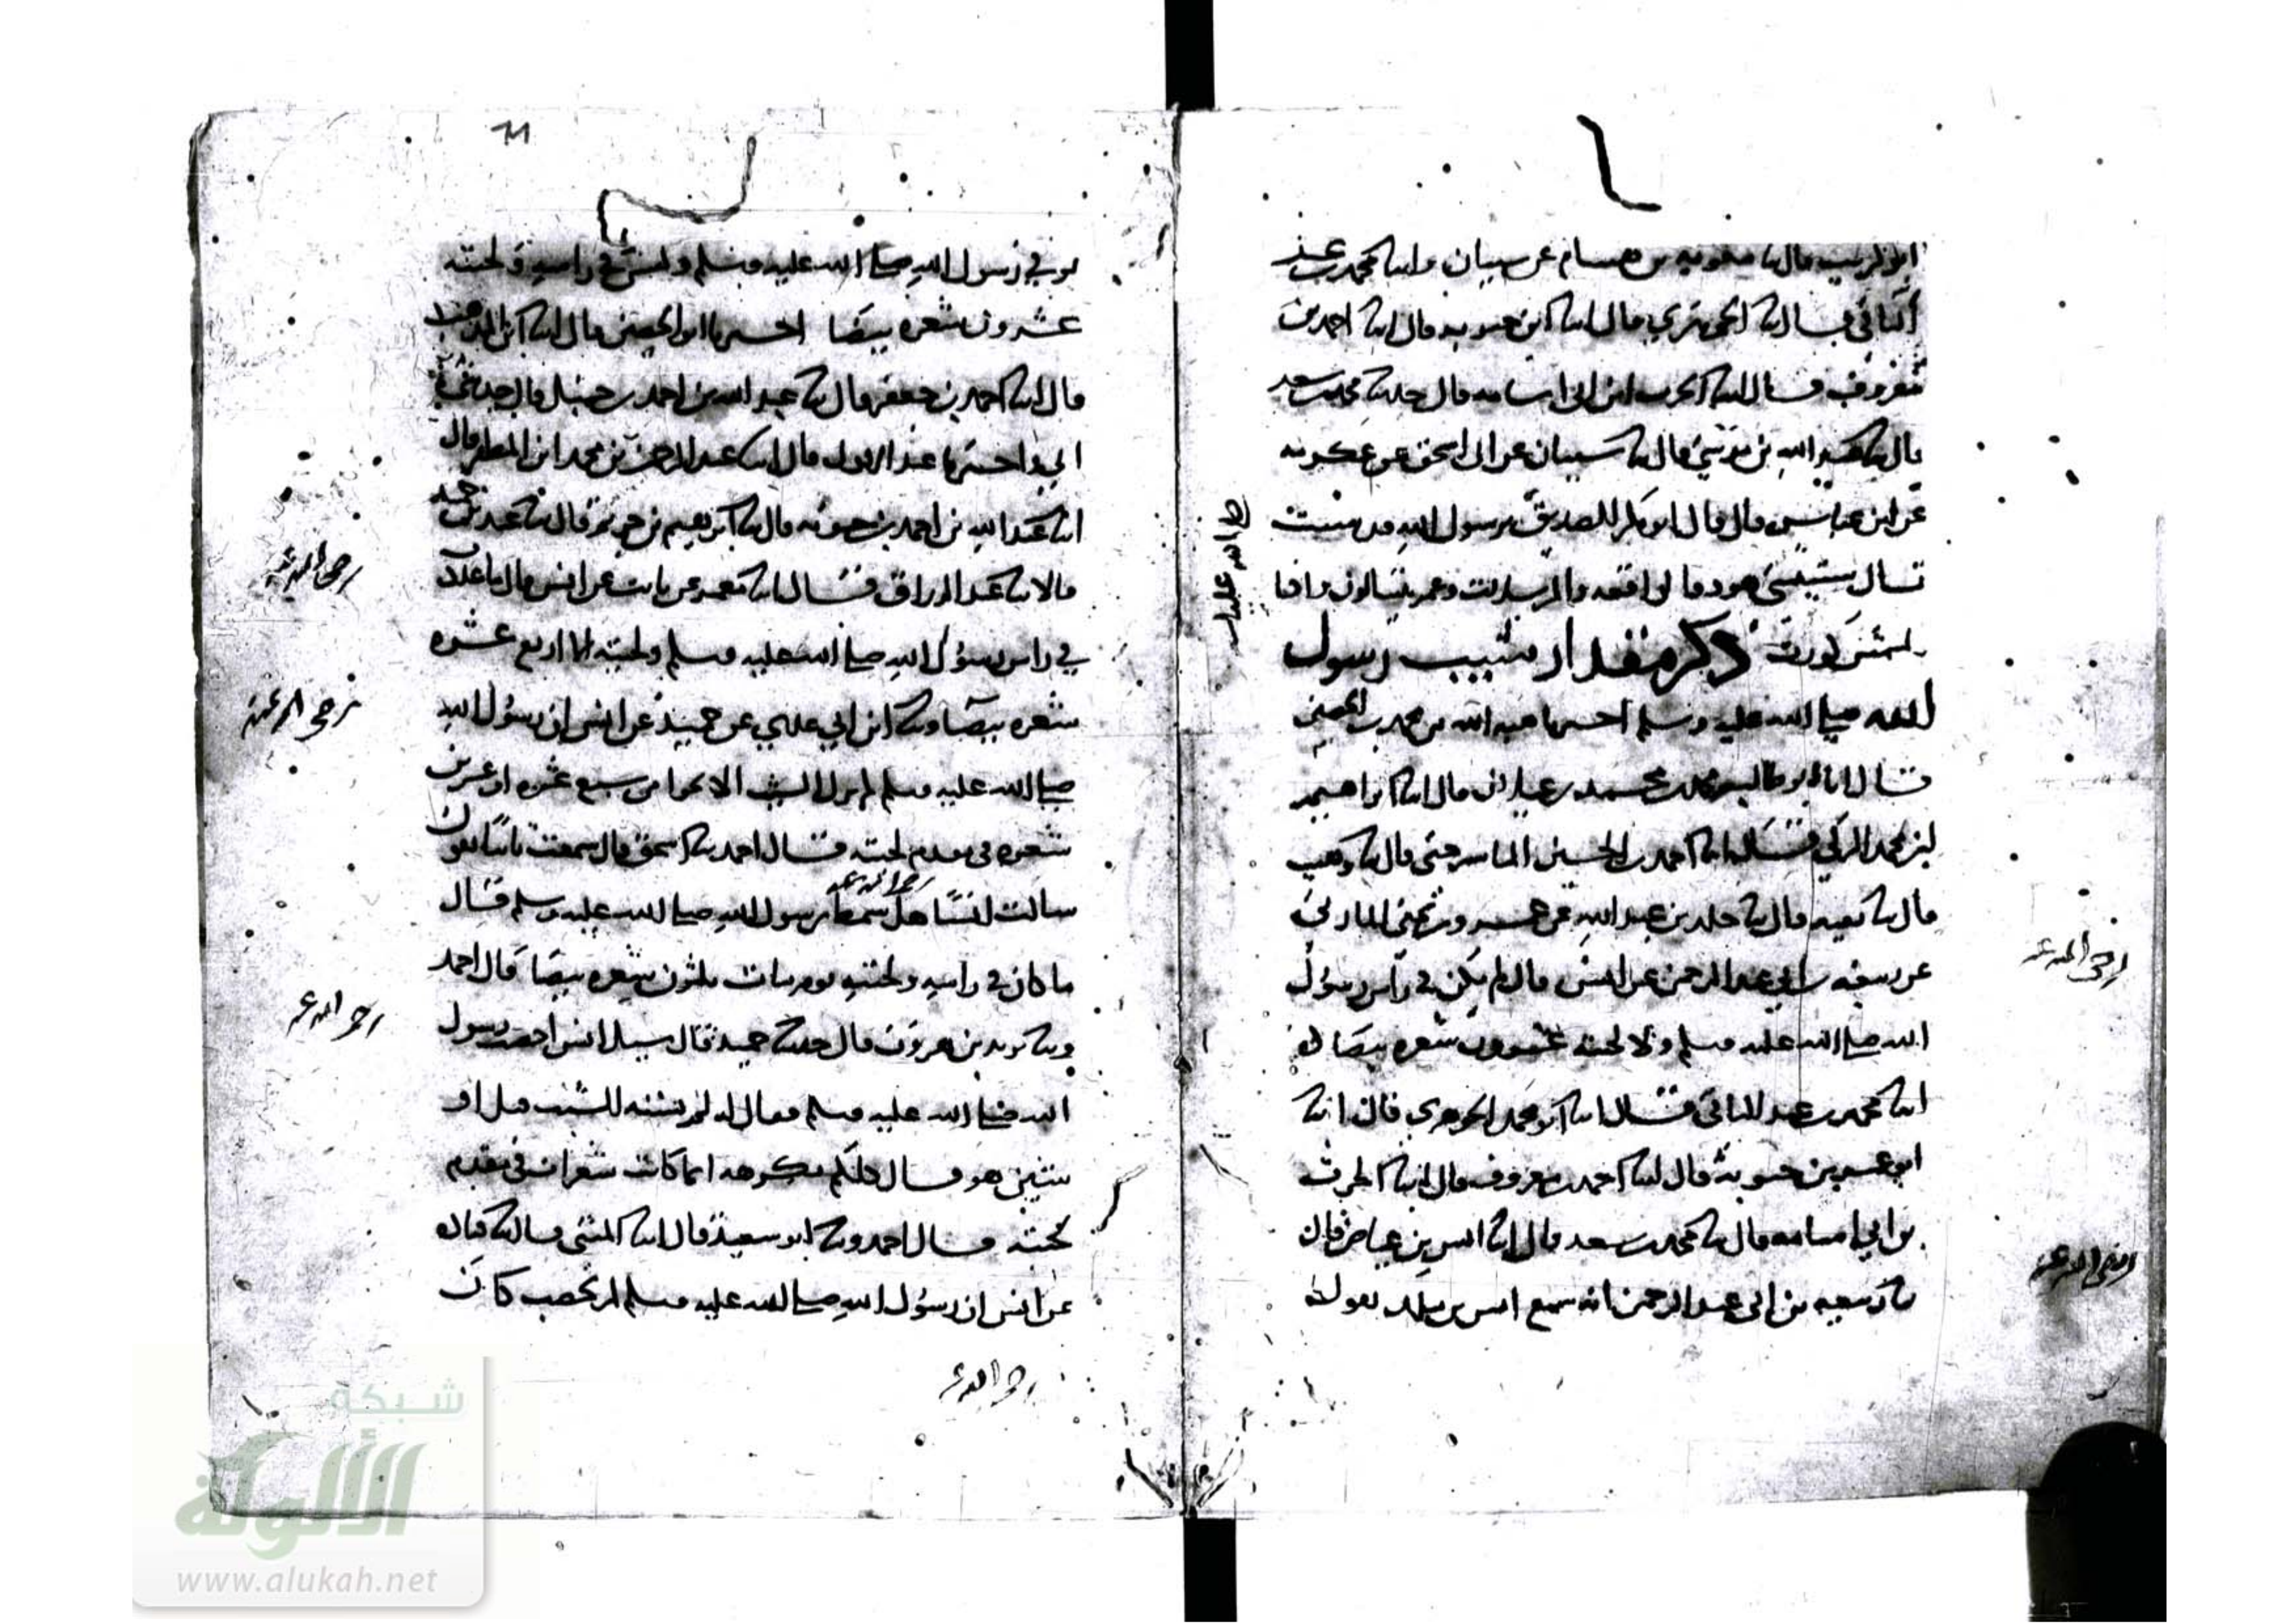 ابو كريب قال نا معوية بن هشام عن شيبان وانا محمد بن عبد
الباقي قال انا الجوهري قال انا ابن حيويه قال انا احمد بن
معروف قال انا الحرث ابن ابي اسامه قال حدثنا محمد بن سعد
قال نا عبيد الله بن موسى قال نا شيبان عن ابي اسحق عن عكرمه
عن ابن عباس قال قال ابو بكر الصديق يرسول الله قد شبت
صلى الله عليك
قال شيبتني هود والواقعه والمرسلات وعم يتسالون واذا
الشمس كورت ذكر مقدار شيب رسول
الله صلى الله عليه وسلم اخبرنا هبه الله بن محمد بن الحصين
قال انا ابو طالب محمد بن محمد بن غيلان قال انا ابراهيم
ابن محمد المزكي قال انا احمد بن الحسين الماسرجسي قال نا وهب
قال نا بقيه قال نا خلد بن عبد الله عن عمرو بن يحيى المازني
عن ربيعه بن ابي عبد الرحمن عن انس قال لم يكن في راس رسول
رضي الله عنه
الله صلى الله عليه وسلم ولا لحيته عشرون شعره بيضا
انا محمد بن عبد الباقي قال انا ابو محمد الجوهري قال انا
ابو عمر بن حيويه قال انا احمد بن معروف قال انا الحرث
بن ابي اسامه قال نا محمد بن سعد قال انا انس بن عياض قال
رضي الله عنه
نا ربيعه بن ابي عبد الرحمن انه سمع انس بن ملك يقول
71
توفي رسول الله صلى الله عليه وسلم وليس في راسه ولحيته
عشرون شعره بيضا اخبرنا ابن الحصين قال انا ابن المذهب
قال انا احمد بن جعفر قال نا عبد الله بن احمد بن حنبل قال حدثني
ابي واخبرنا عبد الاول قال انا عبد الرحمن بن محمد ابن المظفر قال
انا عبد الله بن احمد بن حمويه قال نا ابراهيم بن خريم قال نا عبد بن حميد
قالا نا عبد الرزاق قال انا معمر عن ثابت عن انس قال ما عددت
رضي الله عنه
في راس رسول الله صلى الله عليه وسلم ولحيته الا اربع عشره
شعره بيضا ونا ابن ابي عدي عن حميد عن انس ان رسول الله
رضي الله عنه
صلى الله عليه وسلم لم ير الشيب الا نحوا من سبع عشره او عشرين
شعره في مقدم لحيته قال احمد نا اسحق قال سمعت ثابتا يقول
سالت انسا هل شمط رسول الله صلى الله عليه وسلم قال
رضي الله عنه
ما كان في راسه ولحيته يوم مات ثلثون شعره بيضا قال احمد
ونا يزيد بن هرون قال حدثنا حميد قال سيل انس اخضب رسول
رضي الله عنه
الله صلى الله عليه وسلم فقال انه لم يشنه الشيب قيل او
شين هو قال كلكم يكرهه انما كانت شعرات في مقدم
لحيته قال احمد ونا ابو سعيد قال انا المثنى قال نا قتاده
عن انس ان رسول الله صلى الله عليه وسلم لم يخضب كان
رضي الله عنه
شبكة
الألوكة
www.alukah.net